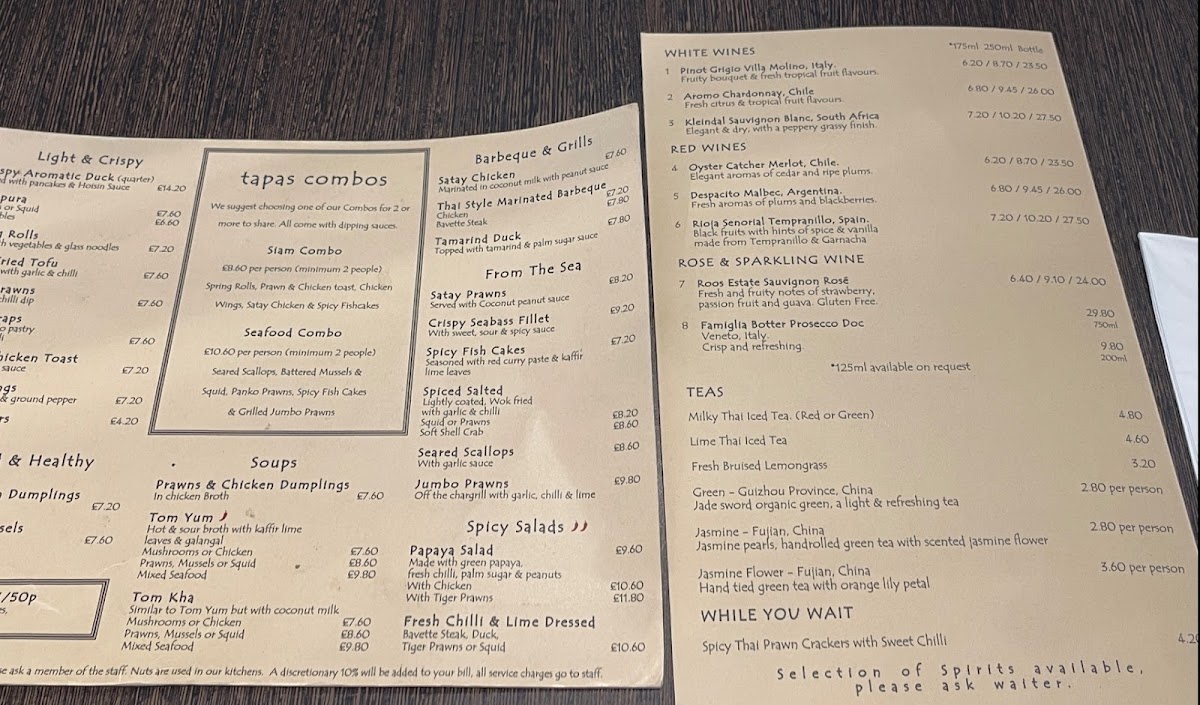 Light & Crispy
spy Aromatic Duck (quarter)
d with pancakes & Hoisin Sauce £14.20
pura
or Squid £7.60
bles £6.60
Rolls
h vegetables & glass noodles £7.20
ried Tofu
with garlic & chilli £7.60
rawns
chilli dip £7.60
raps
o pastry
£7.60
hicken Toast
sauce £7.20
ngs
& ground pepper £7.20
rs £4.20
& Healthy
Dumplings
£7.20
sels
£7.60
/50p
es,
tapas combos
We suggest choosing one of our Combos for 2 or
more to share. All come with dipping sauces.
Siam Combo
£8.60 per person (minimum 2 people)
Spring Rolls, Prawn & Chicken toast, Chicken
Wings, Satay Chicken & Spicy Fishcakes
Seafood Combo
£10.60 per person (minimum 2 people)
Seared Scallops, Battered Mussels &
Squid, Panko Prawns, Spicy Fish Cakes
& Grilled Jumbo Prawns
Soups
Prawns & Chicken Dumplings
In chicken Broth £7.60
Tom Yum
Hot & sour broth with kaffir lime
leaves & galangal
Mushrooms or Chicken £7.60
Prawns, Mussels or Squid £8.60
Mixed Seafood £9.80
Tom Kha
Similar to Tom Yum but with coconut milk
Mushrooms or Chicken £7.60
Prawns, Mussels or Squid £8.60
Mixed Seafood £9.80
Barbeque & Grills
Satay Chicken £7.60
Marinated in coconut milk with peanut sauce
Thai Style Marinated Barbeque
Chicken £7.20
Bavette Steak £7.80
Tamarind Duck £7.80
Topped with tamarind & palm sugar sauce
From The Sea
Satay Prawns £8.20
Served with Coconut peanut sauce
Crispy Seabass Fillet £9.20
With sweet, sour & spicy sauce
Spicy Fish Cakes £7.20
Seasoned with red curry paste & kaffir
lime leaves
Spiced Salted
Lightly coated, Wok fried
with garlic & chilli
Squid or Prawns £8.20
Soft Shell Crab £8.60
Seared Scallops £8.60
With garlic sauce
Jumbo Prawns £9.80
Off the chargrill with garlic, chilli & lime
Spicy Salads
Papaya Salad £9.60
Made with green papaya,
fresh chilli, palm sugar & peanuts
With Chicken £10.60
With Tiger Prawns £11.80
Fresh Chilli & Lime Dressed
Bavette Steak, Duck,
Tiger Prawns or Squid £10.60
se ask a member of the staff. Nuts are used in our kitchens. A discretionary 10% will be added to your bill, all service charges go to staff.
WHITE WINES *175ml 250ml Bottle
1 Pinot Grigio Villa Molino, Italy. 6.20 / 8.70 / 23.50
Fruity bouquet & fresh tropical fruit flavours.
2 Aromo Chardonnay, Chile 6.80 / 9.45 / 26.00
Fresh citrus & tropical fruit flavours.
3 Kleindal Sauvignon Blanc, South Africa 7.20 / 10.20 / 27.50
Elegant & dry, with a peppery grassy finish.
RED WINES
4 Oyster Catcher Merlot, Chile. 6.20 / 8.70 / 23.50
Elegant aromas of cedar and ripe plums.
5 Despacito Malbec, Argentina. 6.80 / 9.45 / 26.00
Fresh aromas of plums and blackberries.
6 Rioja Senorial Tempranillo, Spain. 7.20 / 10.20 / 27.50
Black fruits with hints of spice & vanilla
made from Tempranillo & Garnacha
ROSE & SPARKLING WINE
7 Roos Estate Sauvignon Rosé 6.40 / 9.10 / 24.00
Fresh and fruity notes of strawberry,
passion fruit and guava. Gluten Free.
8 Famiglia Botter Prosecco Doc 29.80
Veneto, Italy. 750ml
Crisp and refreshing. 9.80
200ml
*125ml available on request
TEAS
Milky Thai Iced Tea. (Red or Green) 4.80
Lime Thai Iced Tea 4.60
Fresh Bruised Lemongrass 3.20
Green - Guizhou Province, China 2.80 per person
Jade sword organic green, a light & refreshing tea
Jasmine - Fujian, China 2.80 per person
Jasmine pearls, handrolled green tea with scented jasmine flower
Jasmine Flower - Fujian, China 3.60 per person
Hand tied green tea with orange lily petal
WHILE YOU WAIT
Spicy Thai Prawn Crackers with Sweet Chilli 4.20
Selection of Spirits available,
please ask waiter.